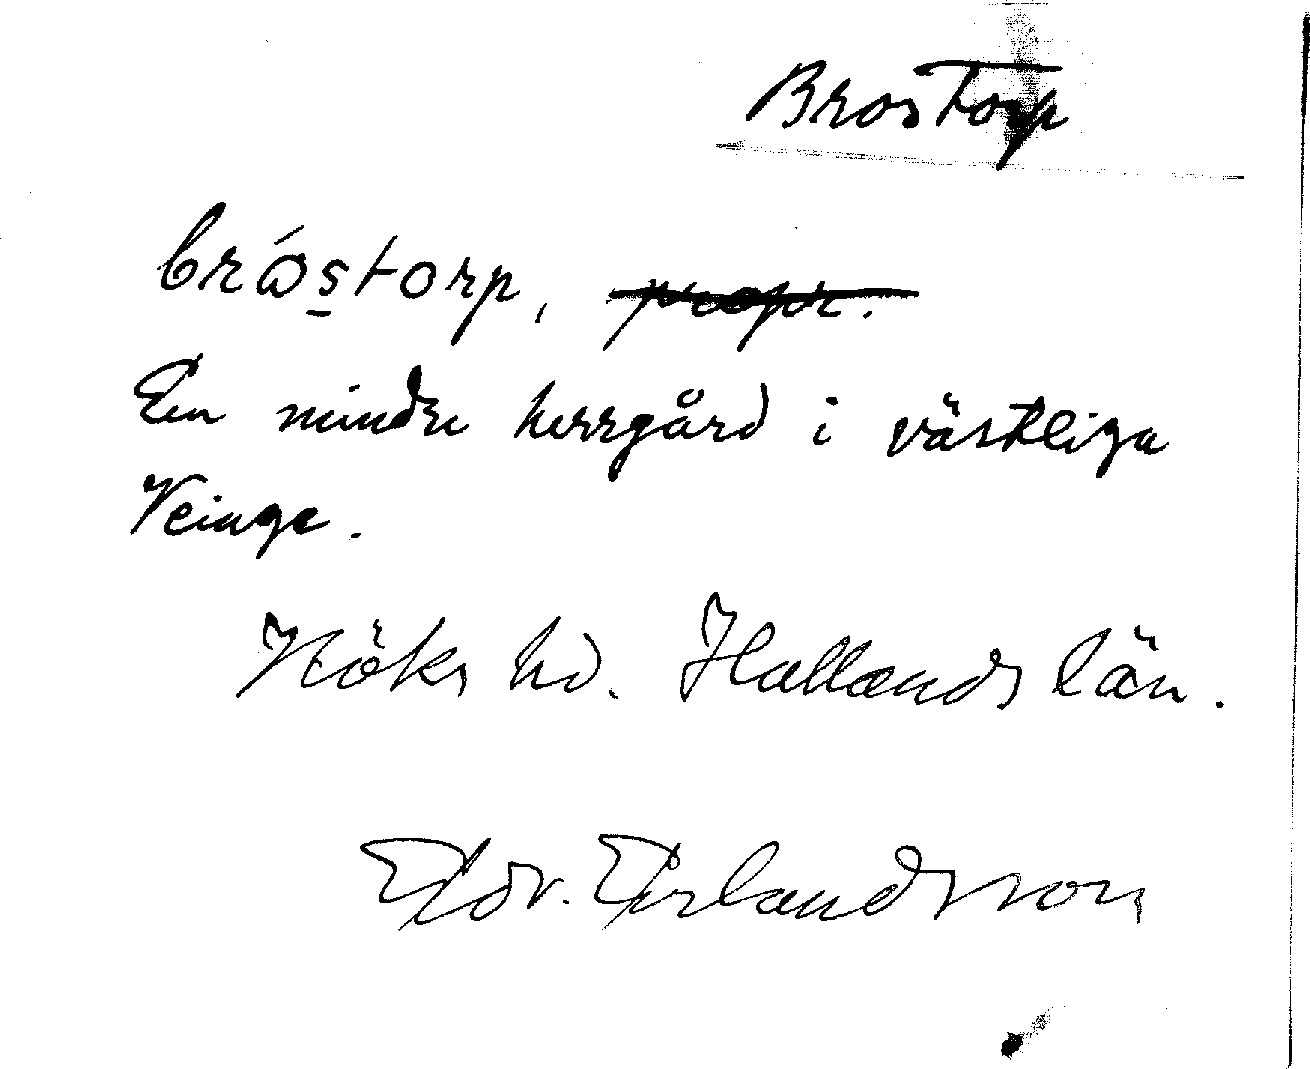 Brostorp
bróstorp, propr.
En mindre herrgård i västliga
Veinge.
Höks hd. Hallands län.
Edv. Erlandsson